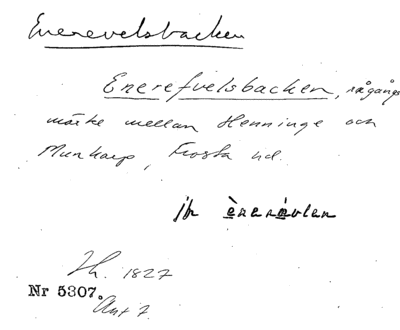 Enerevelsbacken
Enerefvelsbacken, rågångs
märke mellan Henninge och
Munkarp, Frosta hd.
jfr
Jh. 1827
Nr 5307.
Akt 7